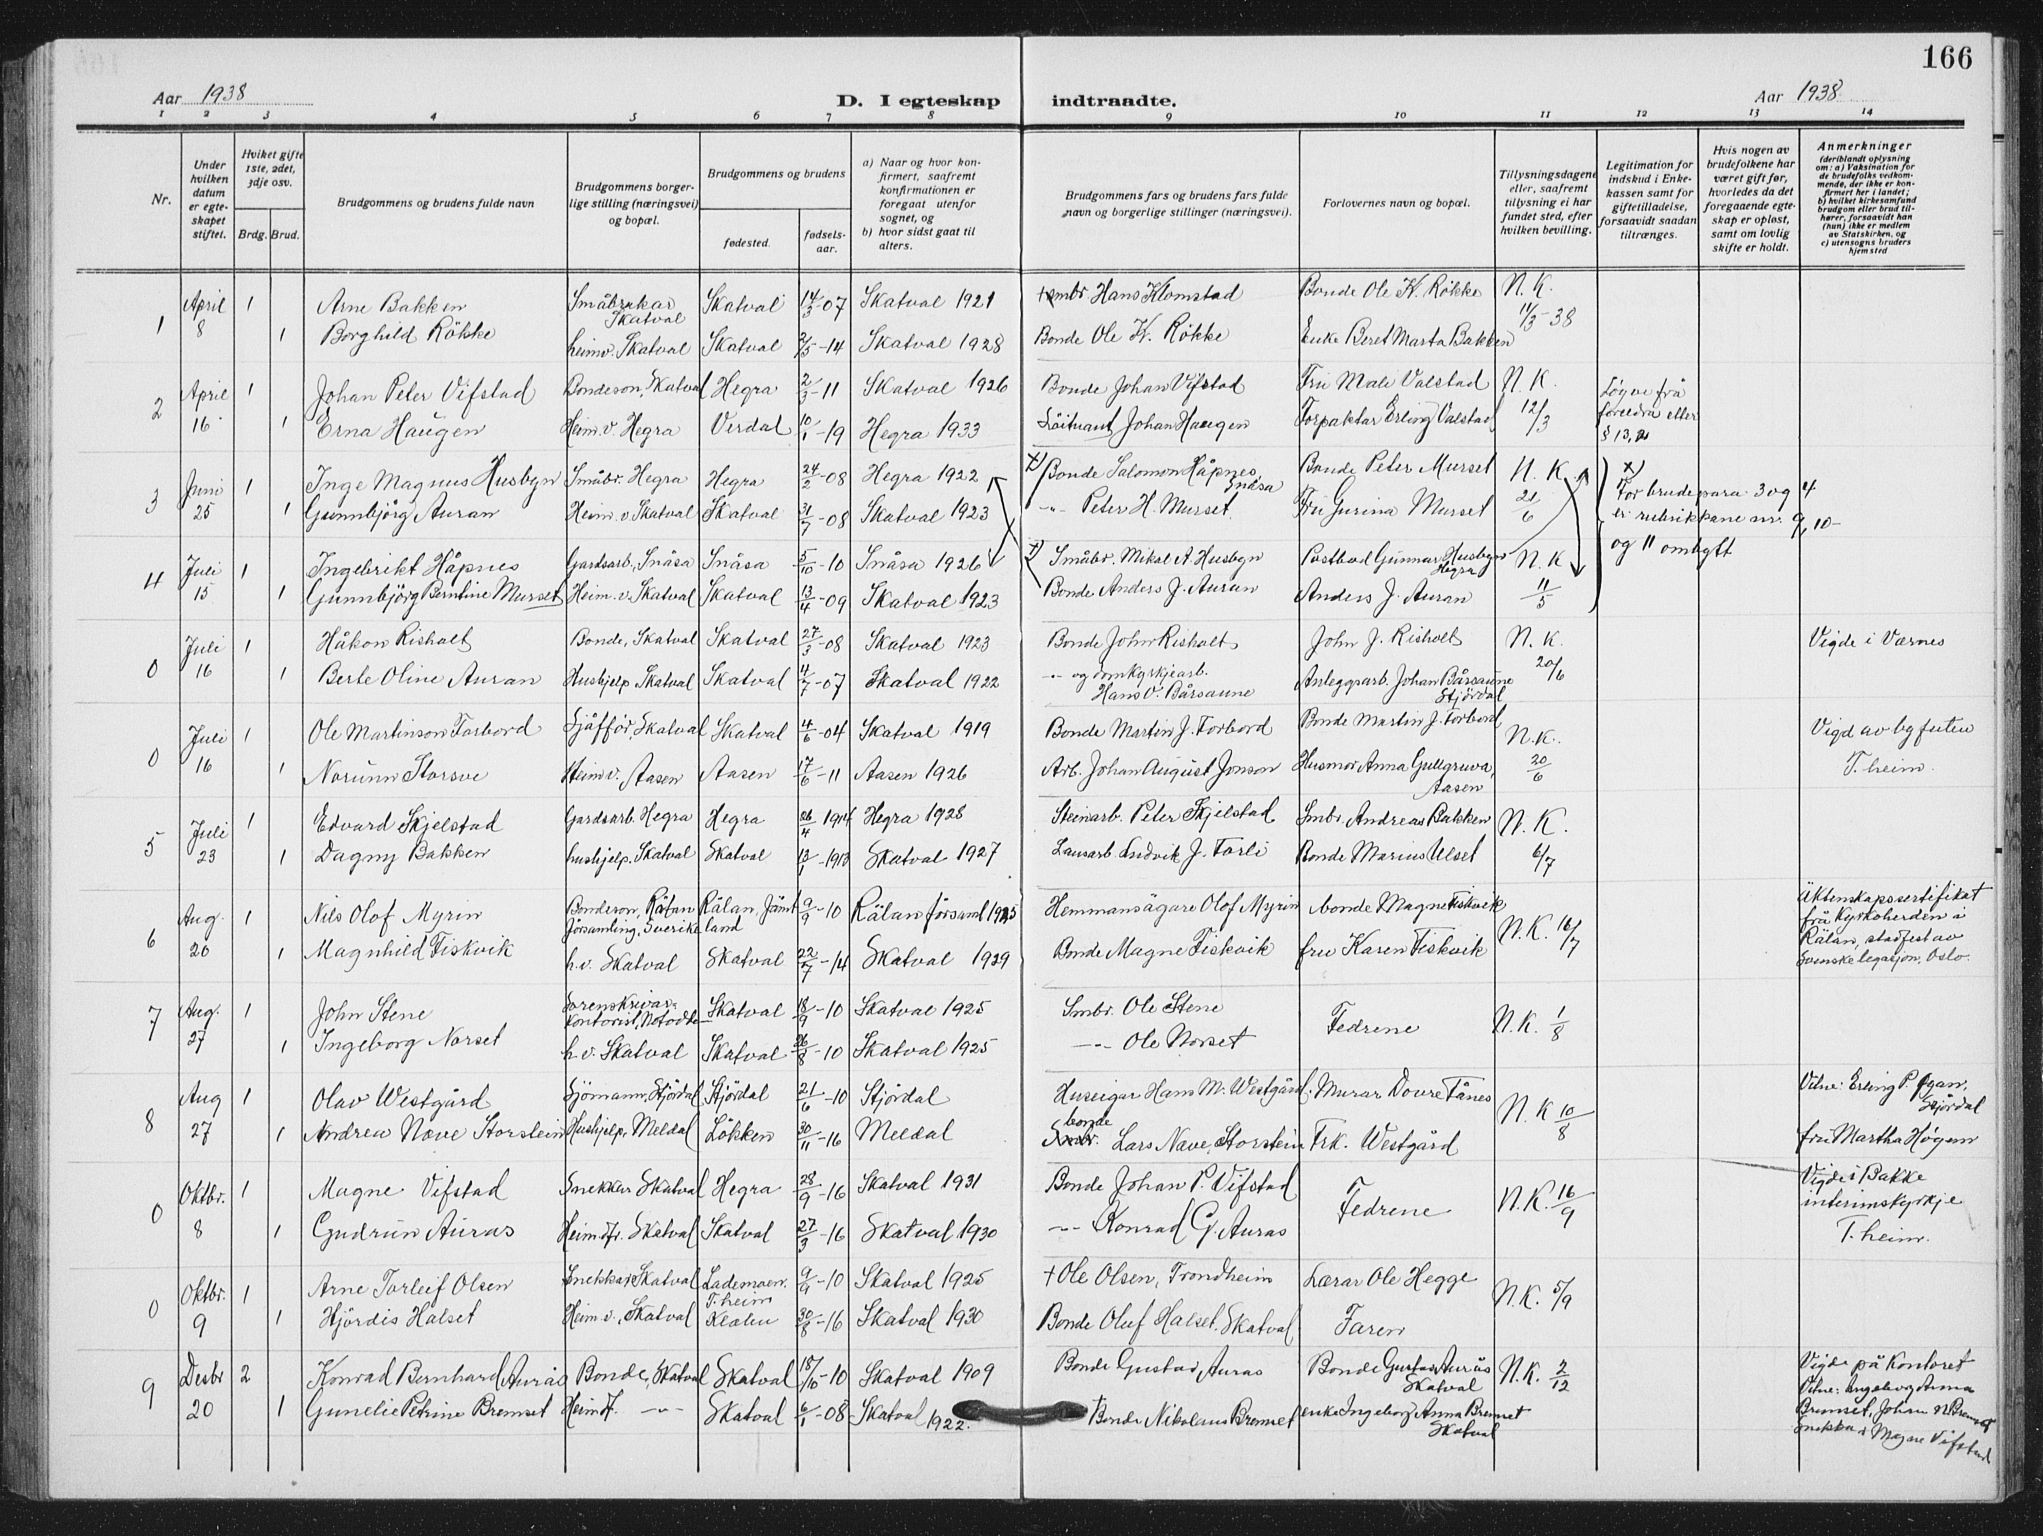 166
Aar 1938
D. I egteskap indtraadte.
Aar 1938
1 2 3 4 5 6 7 8 9 10 11 12 13 14
Nr.
Under hvilken datum er egteskapet stiftet.
Hvilket gifte 1ste, 2det, 3dje osv.
Brdg. Brud.
Brudgommens og brudens fulde navn
Brudgommens borgerlige stilling (næringsvei) og bopæl.
Brudgommens og brudens
fødested. fødselsaar.
a) Naar og hvor konfirmert, saafremt konfirmationen er foregaat utenfor sognet, og
b) hvor sidst gaat til alters.
Brudgommens fars og brudens fars fulde navn og borgerlige stillinger (næringsvei).
Forlovernes navn og bopæl.
Tillysningsdagene eller, saafremt tillysning ei har fundet sted, efter hvilken bevilling.
Legitimation for indskud i Enkekassen samt for giftetilladelse, forsaavidt saadan tiltrænges.
Hvis nogen av brudefolkene har været gift før, hvorledes da det foregaaende egteskap er opløst, samt om lovlig skifte er holdt.
Anmerkninger
(deriblandt oplysning om: a) Vaksination for de brudefolks vedkommende, der ikke er konfirmert her i landet; b) hvilket kirkesamfund brudgom eller brud tilhører, forsaavidt han (hun) ikke er medlem av Statskirken, og c) utensogns bruders hjemsted
1 April 8 1 Arne Bakken Småbrukar Skatval Skatval 14/3-07 Skatval 1921 Smbr Hans Klomstad Bonde Ole K. Røkke N.K. 11/3-38
1 Borghild Røkke heimv. Skatval Skatval 2/5-14 Skatval 1928 Bonde Ole K. Røkke Enke Beret Marta Bakken
2 April 16 1 Johan Peter Vifstad Bondeson, Skatval Hegra 2/3-11 Skatval 1926 Bonde Johan Vifstad Fru Mali Valstad N.K. 12/3 Løyve frå foreldra eller § 13, 2
1 Erna Haugen Heim.v. Hegra Verdal 10/1-19 Hegra 1933 Löitnant Johan Haugen Forpaktar Erling Valstad
3 Juni 25 1 Inge Magnus Husbyn Småbr. Hegra Hegra 24/2-08 Hegra 1922 x) Bonde Salomon Håpnes Snåsa Bonde Peter Murset N.K. 21/6
1 Gunnbjørg Auran Heim.v. Skatval Skatval 31/7-08 Skatval 1923 -"- Peter H. Murset Fru Gurina Murset
x) For brudepara 3 og 4 er rubrikkane nr. 9, 10 og 11 ombytt
4 Juli 15 1 Ingebrikt Håpnes Gardsarb. Snåsa Snåsa 5/10-10 Snåsa 1926 x) Småbr. Mikal A. Husbyn Postbud Gunnar Husbyn Hegra N.K. 11/5
1 Gunnbjörg Berntine Murset Heim.v. Skatval Skatval 13/4-09 Skatval 1923 Bonde Anders J. Auran Anders J. Auran
0 Juli 16 1 Håkon Risholt Bonde, Skatval Skatval 27/3-08 Skatval 1923 Bonde John Risholt John J. Risholt N.K. 20/6 Vigde i Værnes
1 Berte Oline Auran Hushjelp Skatval Skatval 4/7-07 Skatval 1922 -"- og domkyrkjearb. Hans O. Bårsaune Anleggsarb. Johan Bårsaune Stjördal
0 Juli 16 1 Ole Martinson Forbord Sjåffør, Skatval Skatval 4/6-04 Skatval 1919 Bonde Martin J. Forbord Bonde Martin J. Forbord N.K. 20/6 Vigd av bgfuten T.heim.
1 Norunn Storsve Heimv. Aasen Aasen 17/6-11 Aasen 1926 Arb. Johan August Jonson Husmor Anna Gullgruva, Aasen
5 Juli 23 1 Edvard Skjelstad Gardsarb. Hegra Hegra 26/4 1914 Hegra 1928 Steinarb. Peter Skjelstad Smbr. Andreas Bakken N.K. 6/7
1 Dagny Bakken hushjelp, Skatval Skatval 13/1-1913 Skatval 1927 Lausarb. Ludvik J. Forli Bonde Marius Ulset
6 Aug. 20 1 Nils Olof Myrin Bondeson, Rälan församling, Sverike Rälan, Jämtland 9/9-10 Rälan församl 1925 Hemmansägare Olof Myrin bonde Magne Fiskvik N.K. 16/7 Äktenskapssertifikat frå Kyrkoherden i Rälan, stadfest av Svenske legasjon, Oslo.
1 Magnhild Fiskvik h.v. Skatval Skatval 22/7-14 Skatval 1929 Bonde Magne Fiskvik fru Karen Fiskvik
7 Aug. 27 1 John Stene Sorenskrivar-kontorist, Notodden Skatval 18/9-10 Skatval 1925 Smbr. Ole Stene Fedrene N.K. 1/8
1 Ingeborg Norset h.v. Skatval Skatval 26/8-10 Skatval 1925 -"- Ole Norset
8 Aug 27 1 Olav Westgård Sjömann, Stjördal Stjördal 21/6-10 Stjördal Huseigar Hans M. Westgård. Murar Dovre Fånes N.K. 10/8 Vitne: Erling P. Øgan, Stjördal
1 Andrea Nave Storstein Hushjelp, Meldal Lökken 30/11-16 Meldal bonde Smbr. Lars Nave, Storstein Frk. Westgård fru Martha Högum
0 Oktbr. 8 1 Magne Vifstad Snekkar Skatval Hegra 28/9-16 Skatval 1931 Bonde Johan P. Vifstad Fedrene N.K. 16/9 Vigde i Bakke interimskyrkje T.heim.
1 Gudrun Auras Heimdtr. Skatval Skatval 27/3-16 Skatval 1930 -"- Konrad G. Auras
0 Oktbr. 9 1 Arne Torleif Olsen Snekkar, Skatval Lademoen, T.heim 9/9-10 Skatval 1925 + Ole Olsen, Trondheim Lærar Ole Hegge N.K. 5/9
1 Hjördis Halset Heim.v., Skatval Klæbu 30/8-16 Skatval 1930 Bonde Oluf Halset. Skatval Faren
9 Desbr 20 2 Konrad Bernhard Aurås Bonde, Skatval Skatval 18/10-10 Skatval 1909 Bonde Gustav Auras Bonde Gustav Aurås Skatval N.K. 2/12 Vigde på kontoret Vitne: Ingeborg Anna Bremset, Johan N. Bremset Snekkar Magne Vifstad
1 Gunelie Petrine Bremset Heimdt. -"- Skatval 6/1-08 Skatval 1922. + Bonde Nikolaus Bremset enke Ingeborg Anna Bremset Skatval